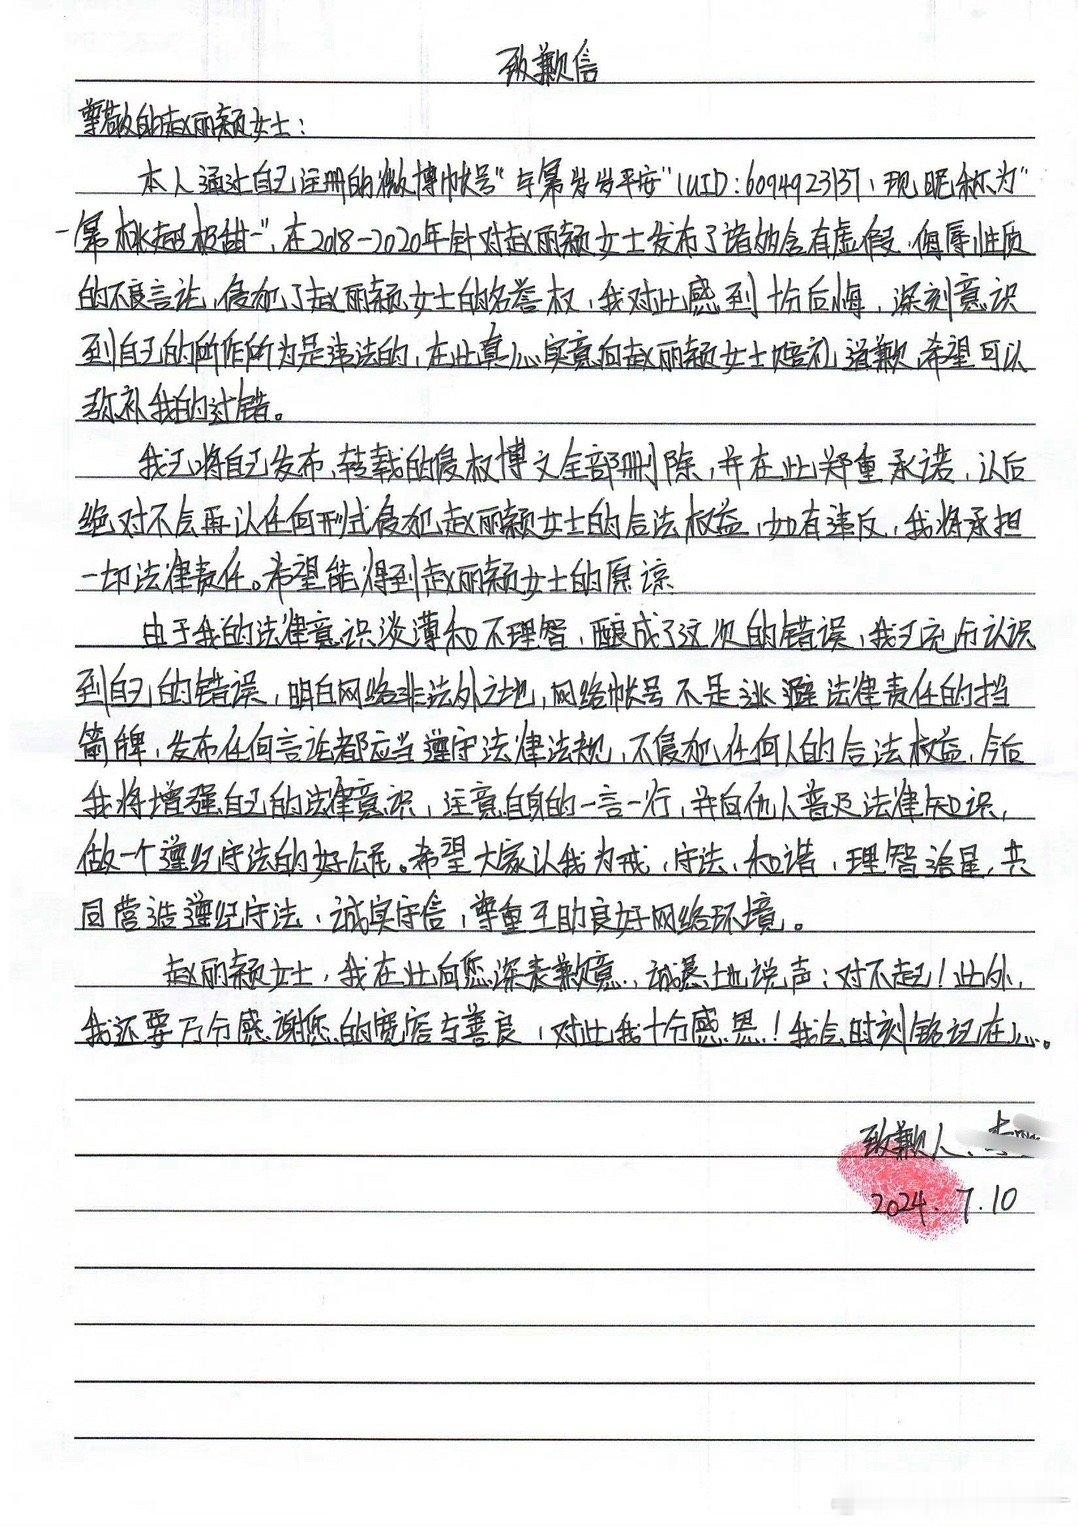 致歉信
尊敬的赵丽颖女士：
本人通过自己注册的微博帐号“与幂岁岁平安”（UID：6094923137，现昵称为“
-幂桃超极甜-”，在2018-2020年针对赵丽颖女士发布了诸多含有虚假、侮辱性质
的不良言论，侵犯了赵丽颖女士的名誉权，我对此感到十分后悔，深刻意识
到自己的所作所为是违法的，在此真心实意向赵丽颖女士赔礼道歉，希望可以
弥补我的过错。
我已将自己发布、转载的侵权博文全部删除，并在此郑重承诺，以后
绝对不会再以任何形式侵犯赵丽颖女士的合法权益，如有违反，我将承担
一切法律责任。希望能得到赵丽颖女士的原谅
由于我的法律意识淡薄和不理智，酿成了这次的错误，我已充分认识
到自己的错误，明白网络非法外之地，网络帐号不是逃避法律责任的挡
箭牌，发布任何言论都应当遵守法律法规，不侵犯任何人的合法权益，今后
我将增强自己的法律意识，注意自身的一言一行，并向他人普及法律知识，
做一个遵纪守法的好公民。希望大家以我为戒，守法、和谐，理智追星，共
同营造遵纪守法、诚实守信，尊重互助良好网络环境。
赵丽颖女士，我在此向您深表歉意，诚恳地说声：对不起！此外，
我还要万分感谢您的宽容与善良，对此我十分感恩！我会时刻铭记在心。
致歉人：
2024.7.10